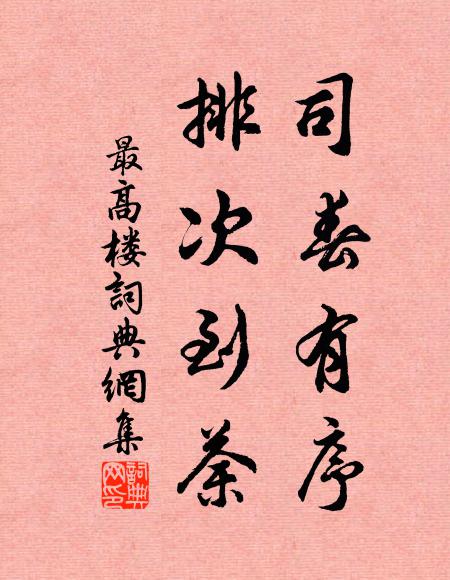 司春有序
排次到荼
最高楼詞典網集
詞典
网印